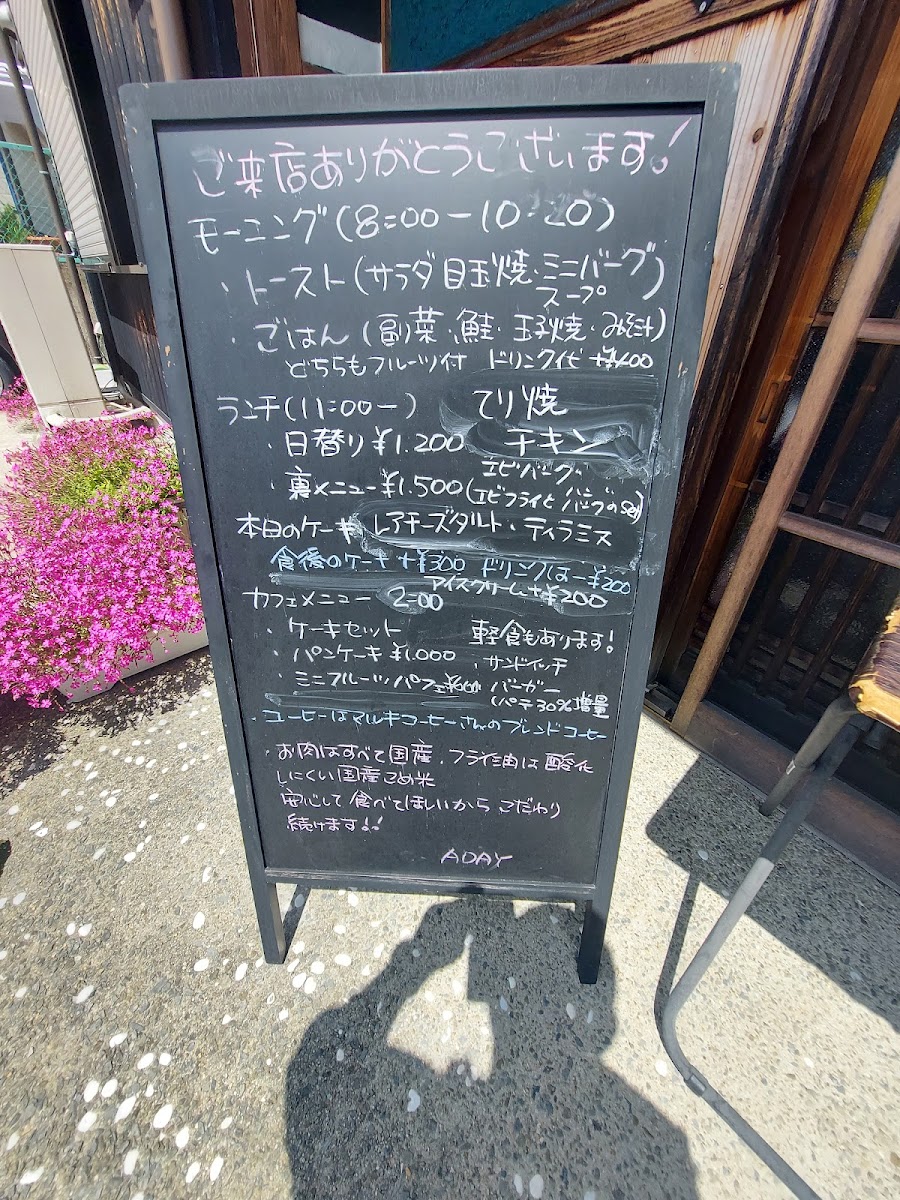 ご来店ありがとうございます!
モーニング(8:00-10:20)
・トースト(サラダ目玉焼・ミニバーグ スープ)
・ごはん(副菜・鮭・玉子焼・みそ汁)
どちらもフルーツ付 ドリンク代+¥400
ランチ(11:00-) てり焼
・日替り¥1.200 チキン
エビバーグ
・裏メニュー¥1.500(エビフライとバーグのset)
本日のケーキ レアチーズタルト・ティラミス
食後のケーキ+¥300 ドリンクは-¥200
アイスクリーム+¥200
カフェメニュー 2:00
・ケーキセット 軽食もあります!
・パンケーキ¥1.000 ・サンドイッチ
・ミニフルーツパフェ バーガー
(パテ30%増量
・コーヒーはマルキコーヒーさんのブレンドコーヒー
・お肉はすべて国産、フライ油は酸化
しにくい国産こめ米
安心して食べてほしいからこだわり
続けます!!
ADAY